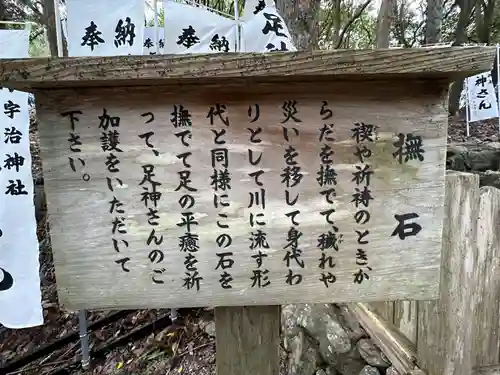 撫石
禊や祈祷のとき、か
らだを撫でて、穢れや
災いを移して身代わ
りとして川に流す形
代と同様にこの石を
撫でて足の平癒を祈
って、足神さんのご
加護をいただいて
下さい。
奉納
奉納
宇治神社
神さん